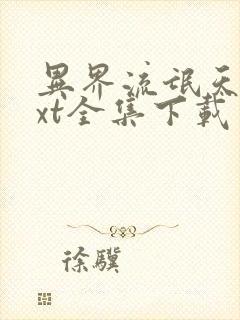 異界流氓天
xt全集下載
徐驥